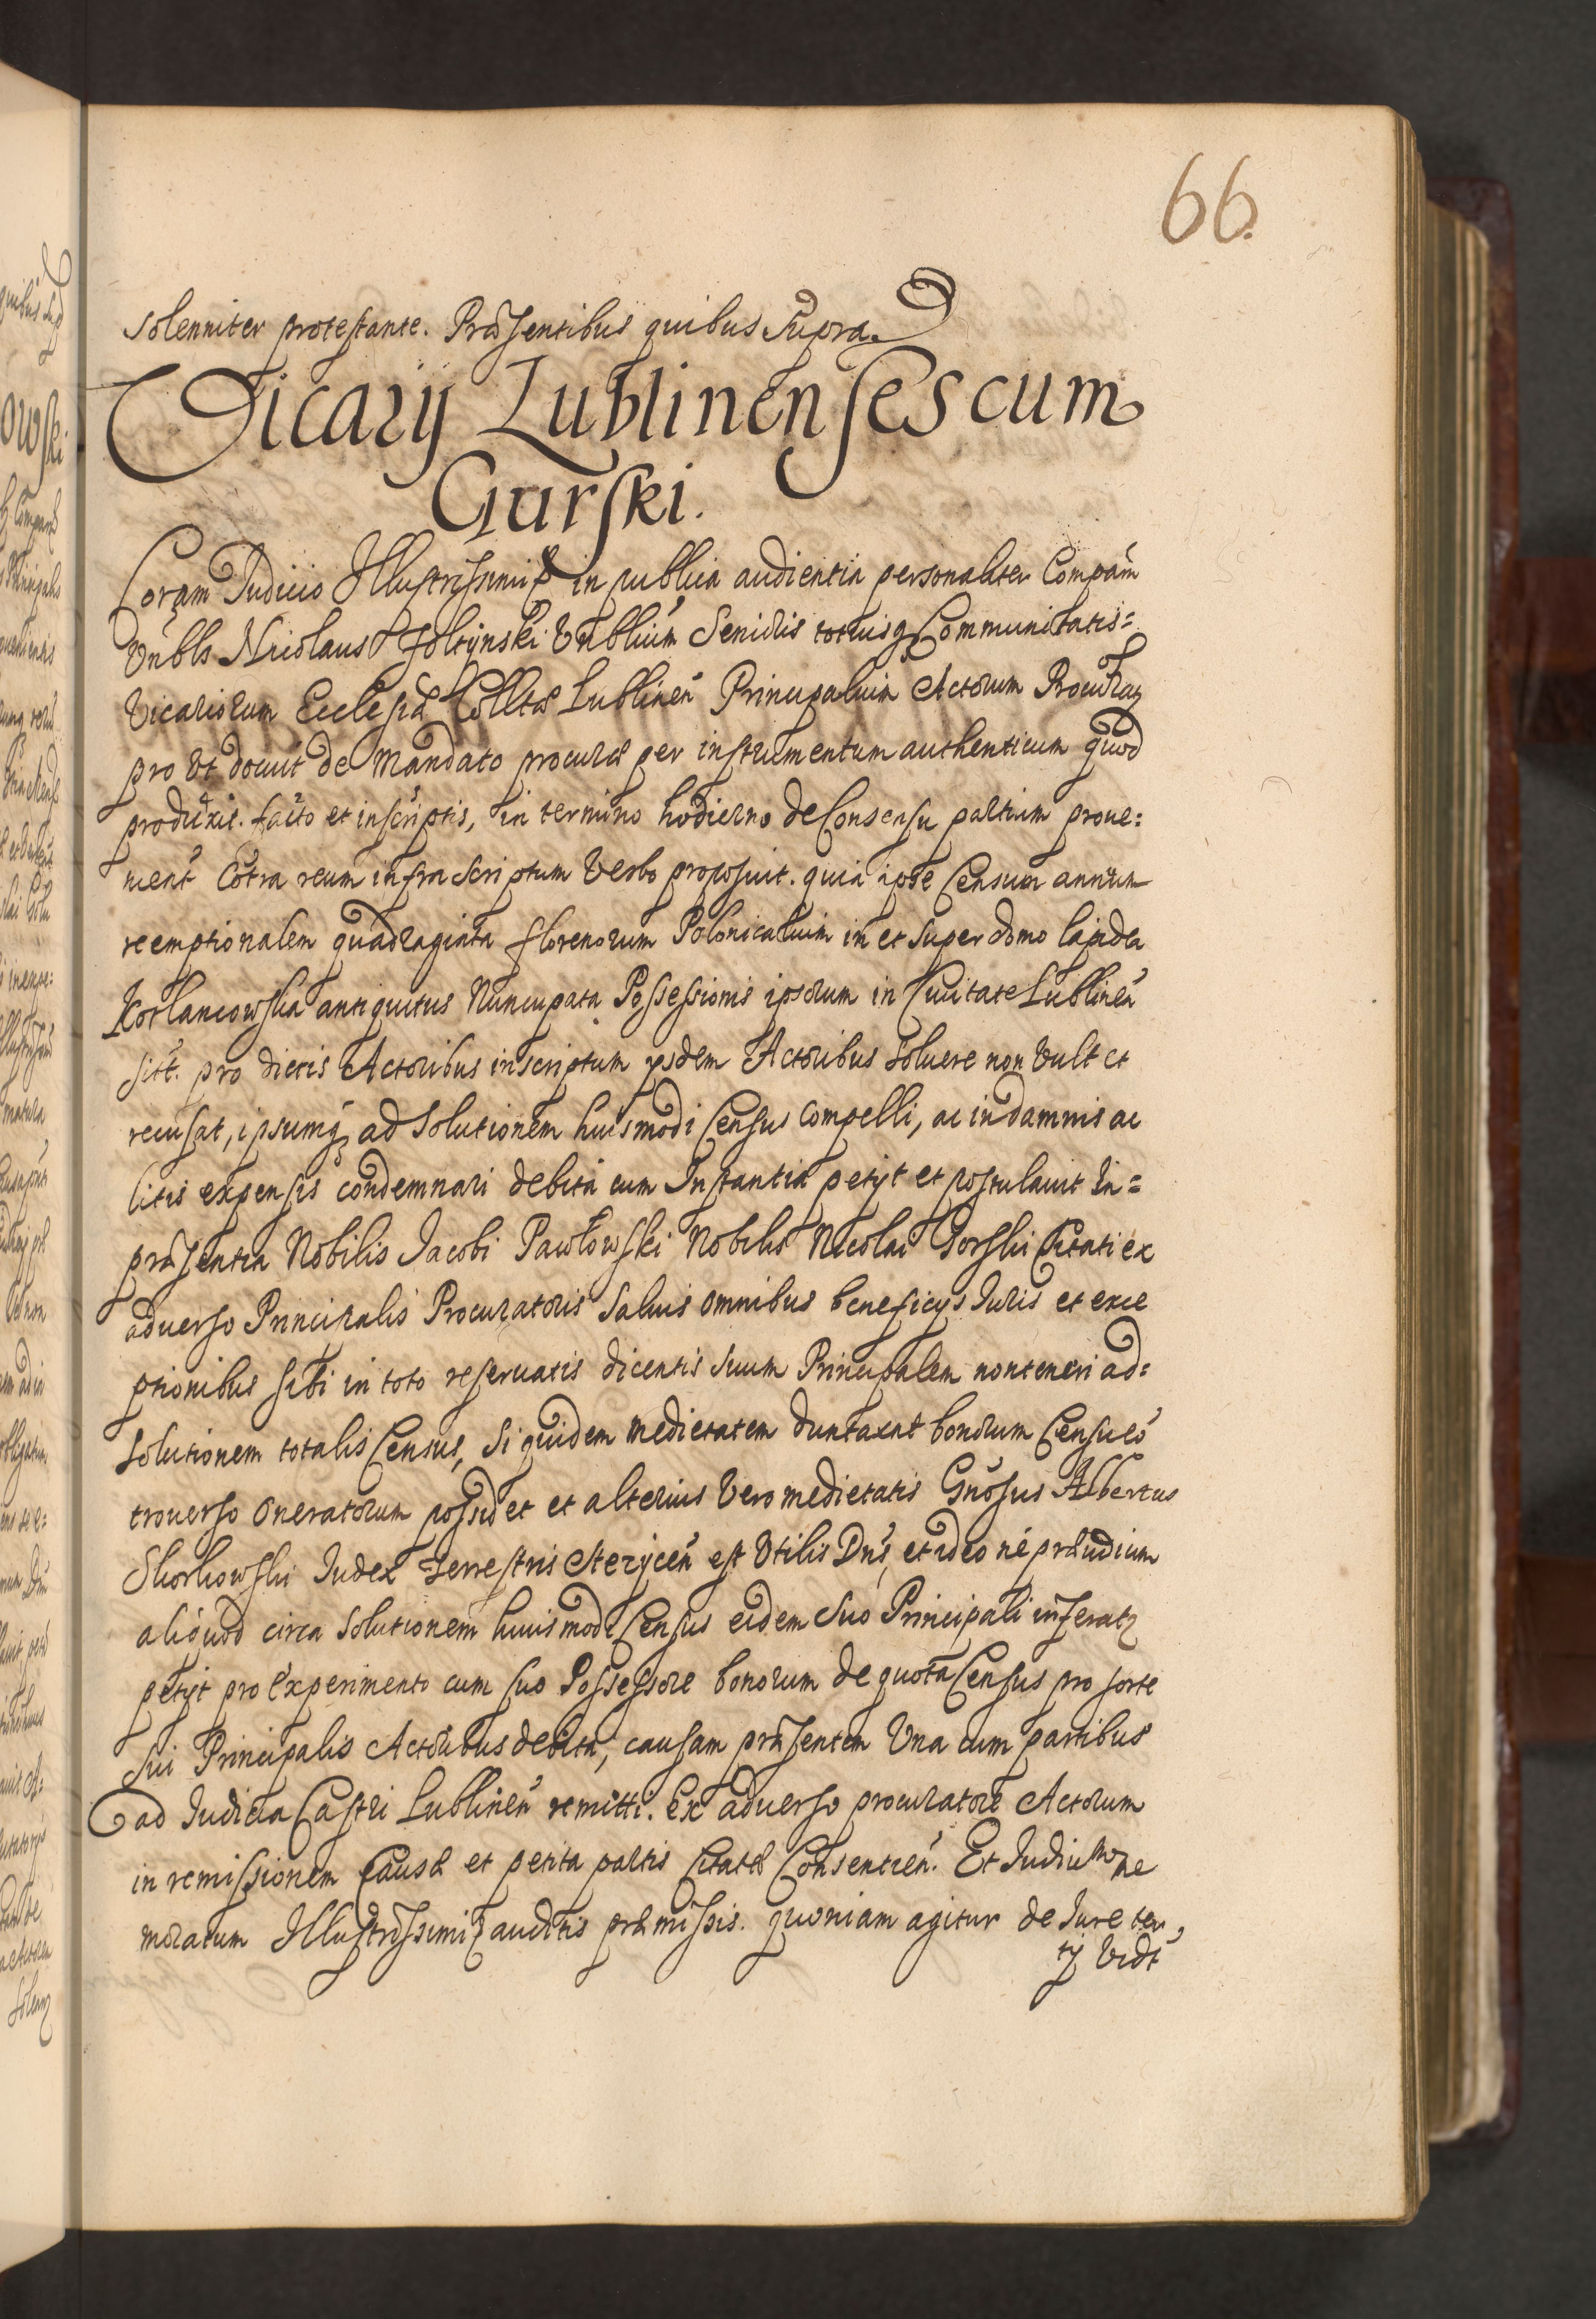 66.
solenniter protestante. Præsentibus quibus Supra.
Vicarij Lublinenses cum
Gurski.
Coram Judicio Illustrissimi in publica audientia personaliter Compam̃
Vn̄bls Nicolaus Foltynski Vnbliũm Senioris totiusq Communitatis=
Vicariorum Ecclesiæ Colltæ Lublineñ Principalium Actorum Procurar
pro vt docuit de Mandato procuræ per instrumentum authenticum quod
produxit. facto et inscriptis, in termino hodierno de Consensu partium proue:
nieñt Cotra reum infra scriptum Verbo proposuit. quia ipse Censum annum
reemptionalem quadraginta florenorum Polonicalium in et super domo lapidea
Korlancowska antiquitus Nuncupata Possessionis ipsorum in Ciuitate Lublineñ
sitt. pro dictis Actoribus inscriptum ysdem Actoribus soluere non vult et
recusat, ipsumq ad solutionem huismodi Census compelli, ac in damnis ac
litis expensis condemnari debita cum Instantia petyt et postulauit In=
præsentia Nobilis Jacobi Pawłowski Nobilis Nicolai Gorski Citati ex
aduerso Principalis Procuratoris saluis omnibus beneficys Juris et exce
ptionibus sibi in toto reseruatis dicentis suum Principalem non teneri ad=
solutionem totalis Census, siquidem medietatem duntaxat bonorum Censu cõ
trouerso oneratorum possidet et alterius Vero medietatis Gnõsus Albertus
Skorkowski Judex Terrestris Sterÿceñ est Vtilis Dñs, et ideo ne præiudicium
aliquod circa solutionem huiusmodi Census eidem suo Principali inferatr
petyt pro experimento cum suo Possessore bonorum de quota Census pro sorte
sui Principalis Actoribus debita, causam præsentem Vna cum partibus
ad Judicia Castri Lublineñ remitti. Ex aduerso procuratore Actorum
in remissionem Causæ et petita partis Citatæ Consentieñ. Et Judicium me
moratum Illustrissimi auditis præmissis. quoniam agitur de Jure ter
tÿ vidt